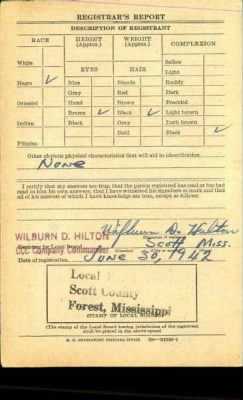 REGISTRAR'S REPORT
DESCRIPTION OF REGISTRANT
RACE HEIGHT (Approx.) WEIGHT (Approx.) COMPLEXION
White Sallow
EYES HAIR Light
Negro ✓ Blue Blonde Ruddy
Gray Red Dark
Oriental Hazel Brown Freckled
Brown ✓ Black ✓ Light brown
Indian Black Gray Dark brown
Bald Black ✓
Filipino
Other obvious physical characteristics that will aid in identification
None
I certify that my answers are true; that the person registered has read or has had
read to him his own answers; that I have witnessed his signature or mark and that
all of his answers of which I have knowledge are true, except as follows:
WILBURN D. HILTON Wilburn D. Hilton
Registrar for Local Board Scott Miss.
CCC Company Commander
Date of registration JUNE 30, 1942
Local
Scott County
Forest, Mississippi
(STAMP OF LOCAL BOARD)
(The stamp of the Local Board having jurisdiction of the registrant
shall be placed in the above space)
U. S. GOVERNMENT PRINTING OFFICE